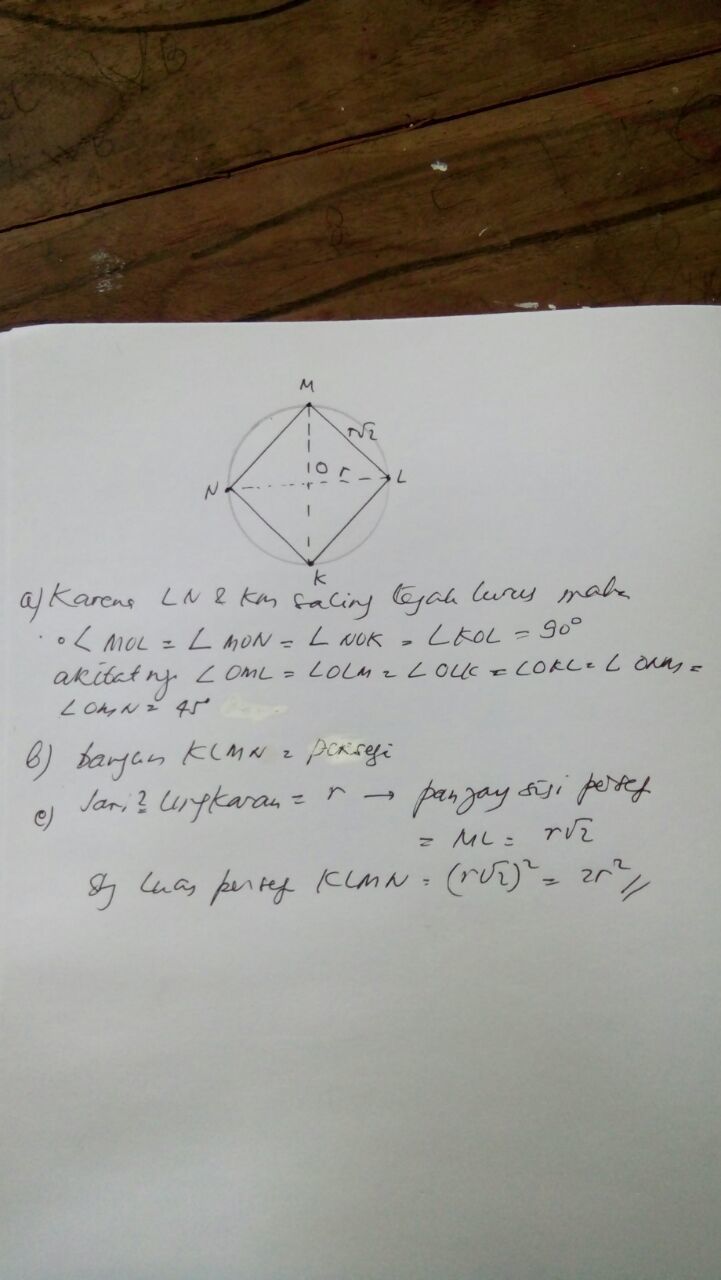 M
r√2
O r
N
L
K
a) Karena LN & KM saling tegak lurus maka
∠MOL = ∠MON = ∠NOK = ∠KOL = 90°
akibatny ∠OML = ∠OLM = ∠OLK = ∠OKL = ∠ONM =
∠OMN = 45°
b) bangun KLMN = persegi
c) Jari2 lingkaran = r → panjang sisi perseg
= ML = r√2
luas perseg KLMN = (r√2)² = 2r² //